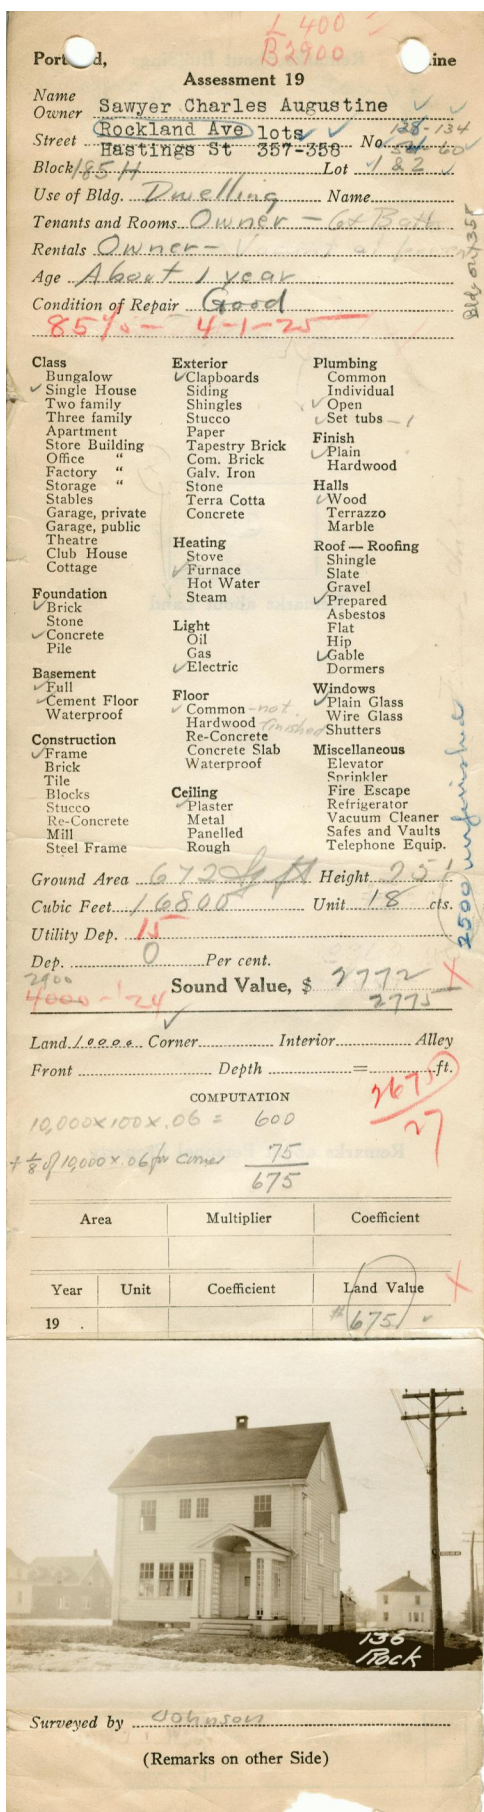 L 400
B 2900
Portland, Maine
Assessment 19
Name
Owner Sawyer Charles Augustine
Street Rockland Ave lots No. 128-134
Hastings St 357-358 60
Block 185 H Lot 1 & 2
Bldg on 358
Use of Bldg. Dwelling Name
Tenants and Rooms Owner - 6 & Bath
Rentals Owner -
Age About 1 year
Condition of Repair Good
85% - 4-1-25
Class
Bungalow
✓ Single House
Two family
Three family
Apartment
Store Building
Office "
Factory "
Storage "
Stables
Garage, private
Garage, public
Theatre
Club House
Cottage
Foundation
✓ Brick
Stone
✓ Concrete
Pile
Basement
✓ Full
✓ Cement Floor
Waterproof
Construction
✓ Frame
Brick
Tile
Blocks
Stucco
Re-Concrete
Mill
Steel Frame
Exterior
✓ Clapboards
Siding
Shingles
Stucco
Paper
Tapestry Brick
Com. Brick
Galv. Iron
Stone
Terra Cotta
Concrete
Heating
Stove
✓ Furnace
Hot Water
Steam
Light
Oil
Gas
✓ Electric
Floor
✓ Common - not
Hardwood finished
Re-Concrete
Concrete Slab
Waterproof
Ceiling
✓ Plaster
Metal
Panelled
Rough
Plumbing
Common
Individual
✓ Open
✓ Set tubs - 1
Finish
✓ Plain
Hardwood
Halls
✓ Wood
Terrazzo
Marble
Roof — Roofing
Shingle
Slate
Gravel
✓ Prepared
Asbestos
Flat
Hip
✓ Gable
Dormers
Windows
✓ Plain Glass
Wire Glass
Shutters
Miscellaneous
Elevator
Sprinkler
Fire Escape
Refrigerator
Vacuum Cleaner
Safes and Vaults
Telephone Equip.
2500 unfinished
Ground Area 672 Sq ft Height 25'
Cubic Feet 16800 Unit 18 cts.
Utility Dep. 15
Dep. 0 Per cent.
2900
4000 - '24 Sound Value, $ 2772 X
2775
Land 10000 Corner ✓ Interior Alley
Front Depth = ft.
2675
27
COMPUTATION
10,000 x 100 x .06 = 600
+ 1/8 of 10,000 x .06 for corner 75
675
Area Multiplier Coefficient
Year Unit Coefficient Land Value X
19 . $ 675 ✓
136
Rock
Surveyed by Johnson
(Remarks on other Side)